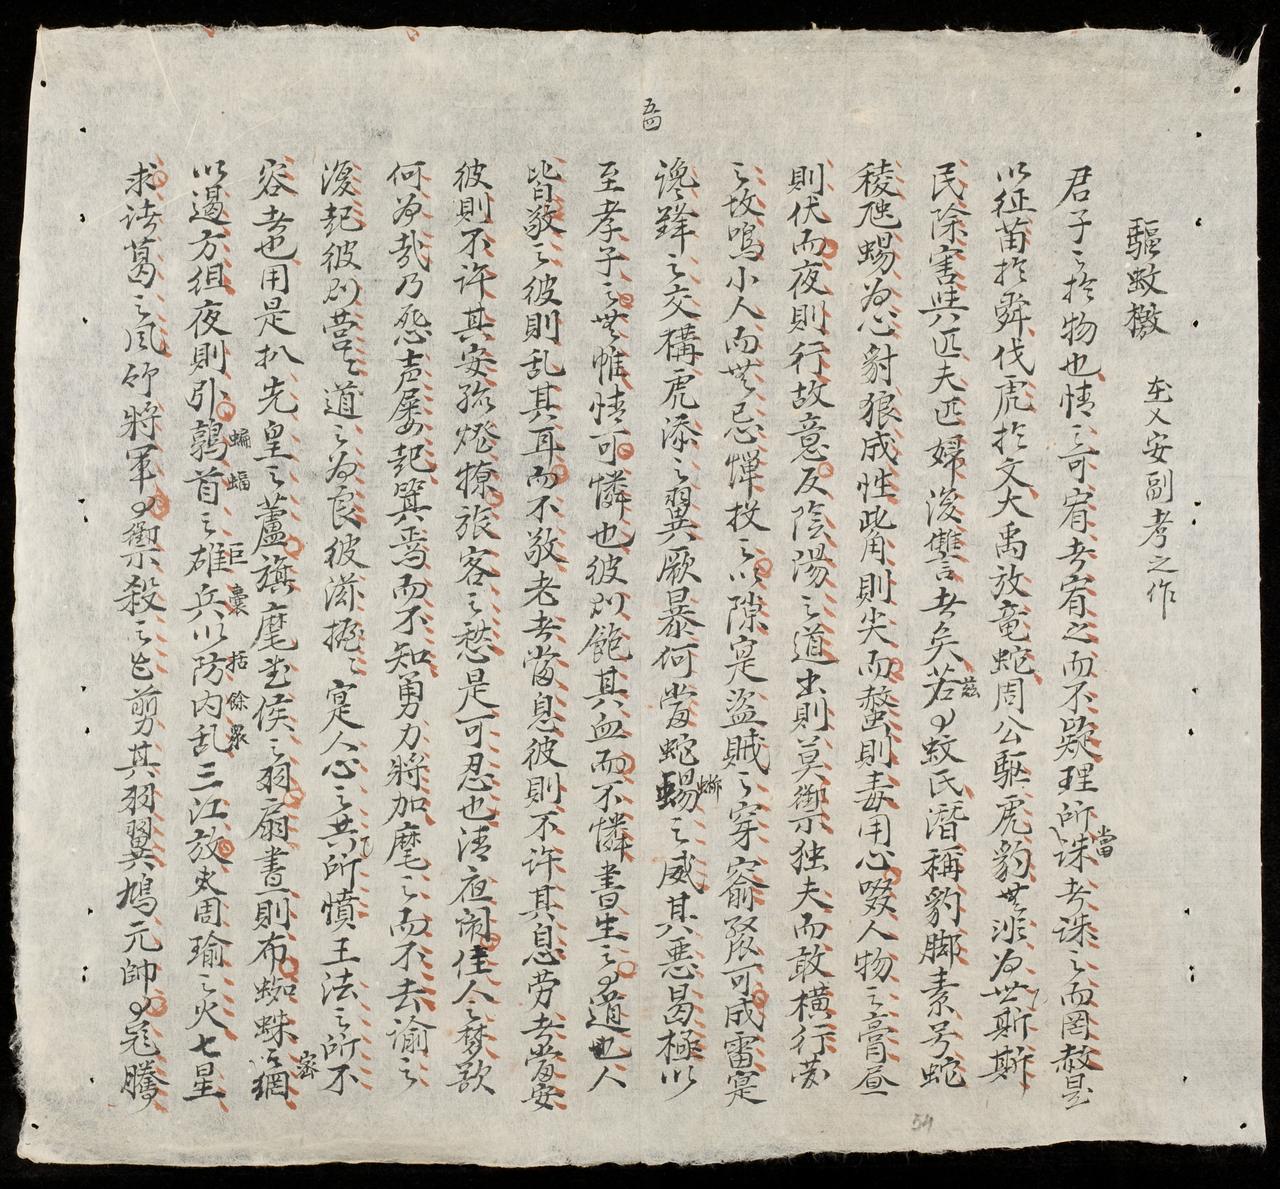 五四
驅蚊檄 左乂安副考之作
君子之於物也情之可宥者宥之而不疑理所當誅者誅之而罔赦是
以征苗於舜伐虎於文大禹放竜蛇周公驅虎豹無非為世斯
民除害與匹夫匹婦復讐者矣若茲蚊氏潛稱豹脚素号蛇
稜虺蜴為心豺狼成性此角則尖而螫則毒用心啜人物之膏昼
則伏而夜則行故意反陰陽之道出則莫禦独夫而敢橫行蓋
之故鳴小人而無忌憚投之以隙寔盜賊之穿窬聚可成雷寔
讒鋒之交構虎添之翼厥暴何當蛇蜴之威其悪曷極以
至孝子之無帷情可憐也彼則飽其血而不憐書生之道也人
皆敬之彼則乱其耳而不敬老者當息彼則不许其息劳者當安
彼則不许其安孤燈撩旅客之愁是可忍也清夜闹佳人之梦歌
何為哉乃怨声屡起箕焉而不知勇力將加麾之而不去諭之
復起彼則营々道之為良彼滋擾々寔人心之共所憤王法之所不
容者也用是扒先皇之蘆旗麾武侯之羽扇晝則布蜘蛛之密網
以遏方徂夜則引蝙蝠鶉首之雄兵以防内乱三江放周瑜之火七星
巨囊括餘衆
求诸葛之风竹將軍禦殺之剪其羽翼鳩元帥騰
54